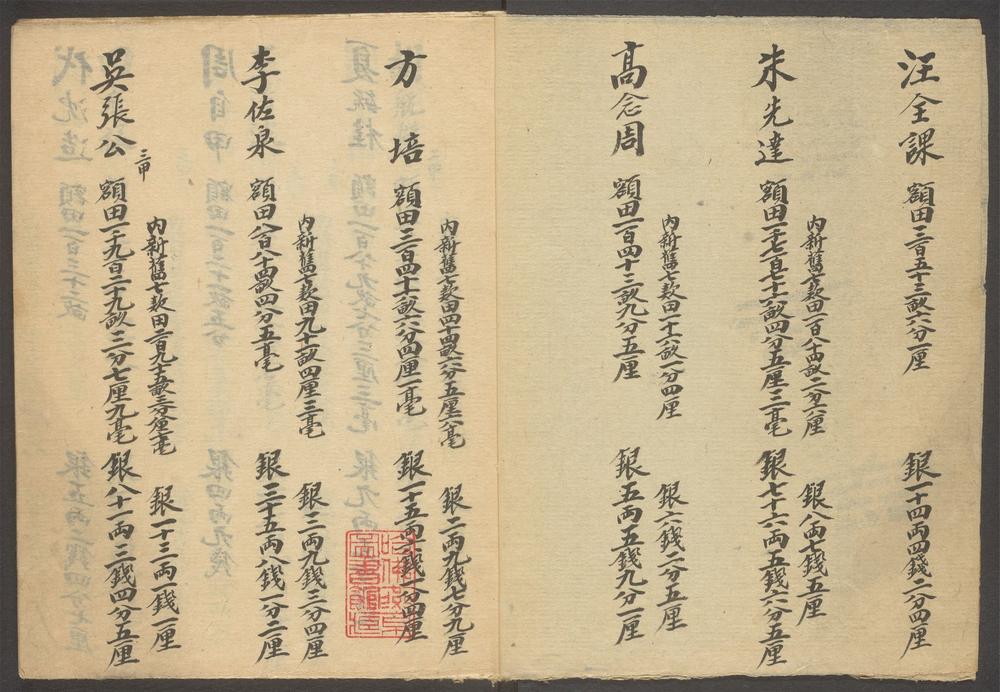 汪全課 額田三百五十三畝六分一厘 銀一十四両四錢二分四厘
朱先達 額田一千七百七十六畝四分五厘三毫 銀七十六両五錢六分五厘
内新舊七款田一百八十四畝二分六厘 銀八両七錢五厘
高念周 額田一百四十三畝九分五厘 銀五両五錢九分一厘
内新舊七款田一十六畝一分四厘 銀六錢二分五厘
方培 額田三百四十一畝六分四厘一毫 銀一十五両六錢一分四厘
内新舊七款田四十四畝六分五厘六毫 銀二両九錢七分九厘
李佐泉 額田八百八十四畝四分五毫 銀三十五両八錢一分二厘
内新舊七款田九十一畝四厘三毫 銀三両九錢三分四厘
吳張公 三甲 額田一千九百二十九畝三分七厘九毫 銀八十一両三錢四分五厘
内新舊七款田二百九十五畝三分 銀一十三両一錢一厘